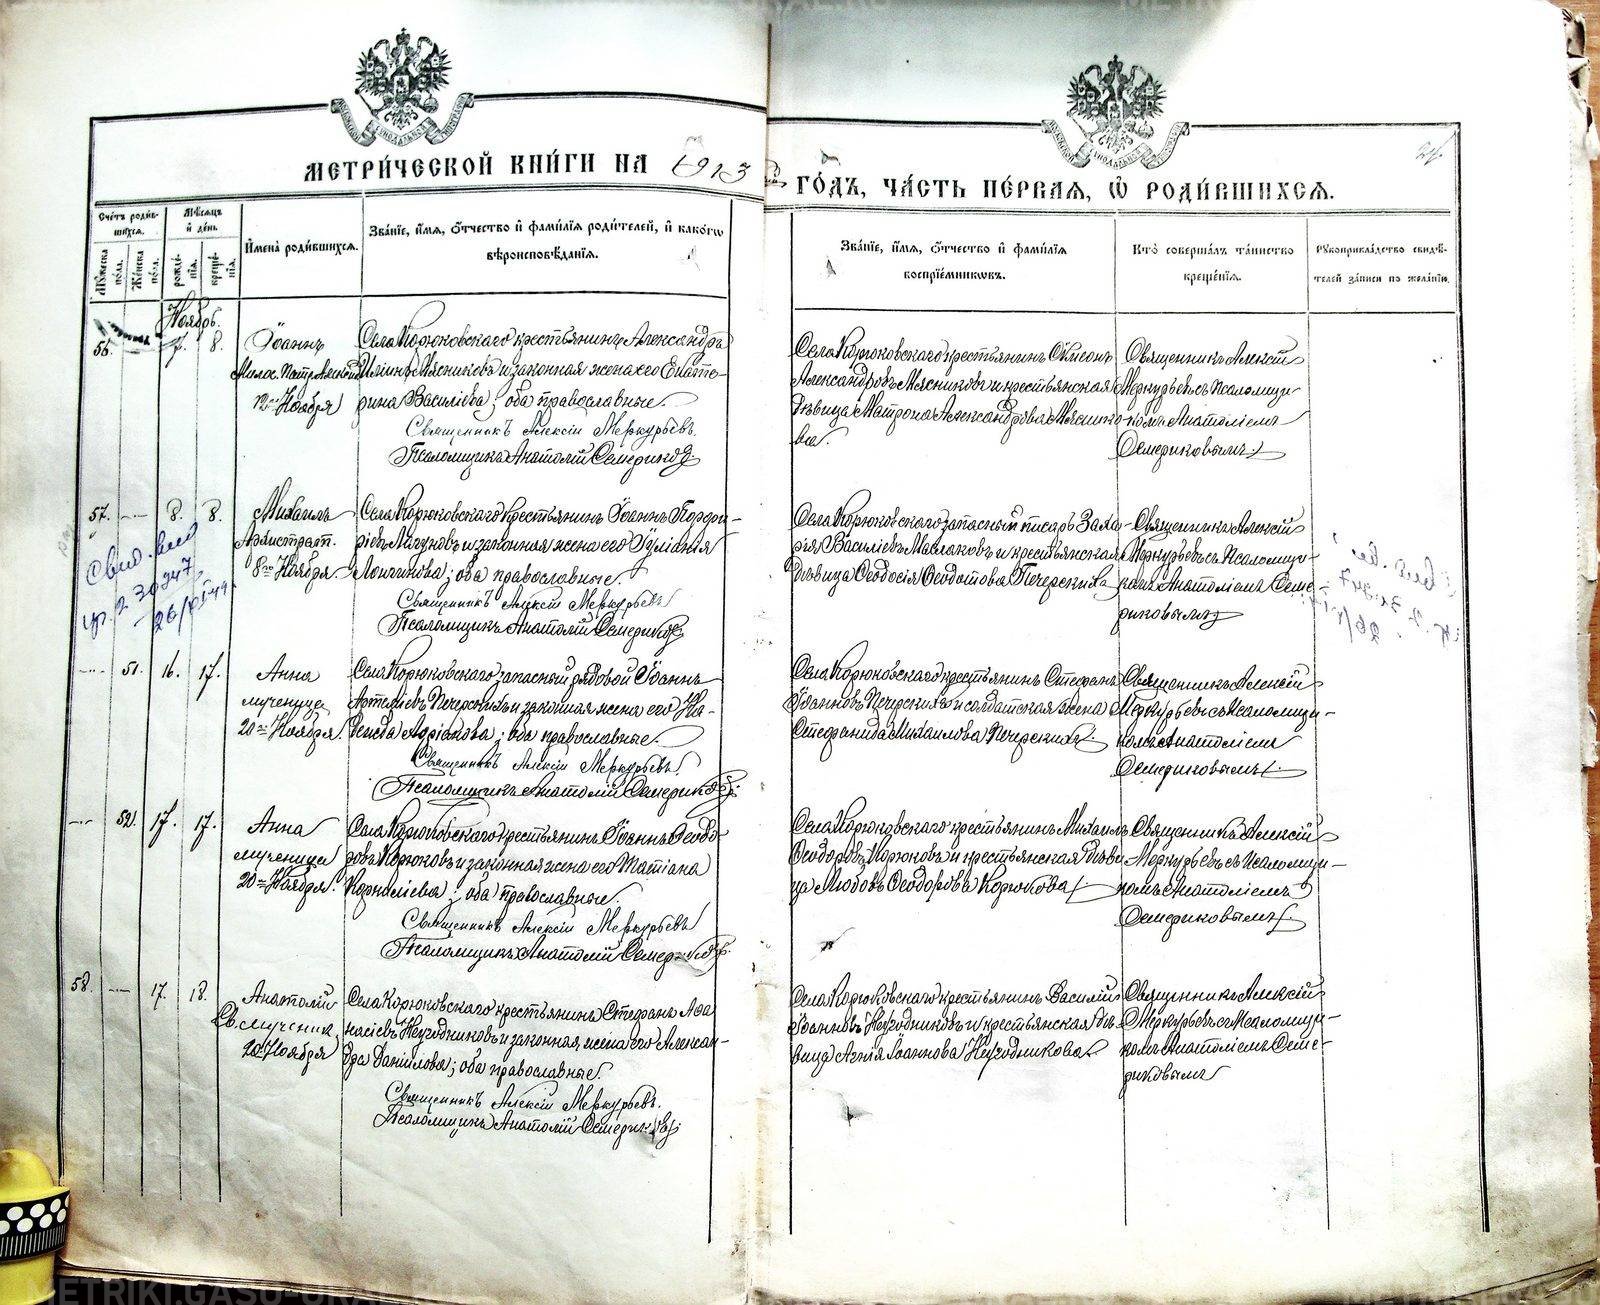 МЕТРИ́ЧЕСКОЙ КНИ́ГИ НА 1913
ГО́ДЪ, ЧА́СТЬ ПЕ́РВАЯ, Ѡ РОДИ́ВШИХСЯ.
Сче́тъ роди́вшихся.
Му́жеска по́ла.
Же́нска по́ла.
Мѣ́сяцъ и де́нь.
рожде́нія.
креще́нія.
И́мена роди́вшихся.
Зва́ніе, и́мя, о́тчество и фами́лія роди́телей, и како́гѡ
вѣроисповѣ́данія.
Зва́ніе, и́мя, о́тчество и фами́лія
воспріе́мниковъ.
Кто̀ соверша́лъ та́инство
креще́нія.
Рукоприкла́дство свидѣ́-
телей за́писи по жела́нію.
Ноябрь.
56. 7. 8.
Іоаннъ
Милос. Патр. Алекс.
12го Ноября
Села Корюковскаго крестьянинъ Александръ
Илiинъ Мясниковъ и законная жена его Екате-
рина Василіева; оба православные.
Священникъ Алексій Меркурьевъ.
Псаломщикъ Анатолій Семериковъ
Села Корюковскаго крестьянинъ Симеонъ
Александровъ Мясниковъ и крестьянская
дѣвица Матрона Александрова Мяснико-
ва.
Священникъ Алексій
Меркурьевъ съ псаломщи-
комъ Анатоліемъ
Семериковымъ.
57. — 8. 8.
Михаилъ
Архистрат.
8го Ноября
Села Корюковскаго крестьянинъ Іоаннъ Порфи-
ріевъ и законная жена его Іуліанія
Лонгинова; оба православные.
Священникъ Алексій Меркурьевъ
Псаломщикъ Анатолій Семериковъ
Села Корюковскаго запасный писарь Заха-
рія Василіевъ Маслаковъ и крестьянская
дѣвица Ѳеодосія Ѳеодотова Печерскихъ
Священникъ Алексій
Меркурьевъ съ псаломщи-
комъ Анатоліемъ Семе-
риковымъ
Свид. выд
2 30347
26/
— 51. 16. 17.
Анна
мученица
20го Ноября.
Села Корюковскаго запасный рядовой Іоаннъ
Артеміевъ Печерскихъ и законная жена его На-
Адріанова; оба православные.
Священникъ Алексій Меркурьевъ.
Псаломщикъ Анатолій Семериковъ
Села Корюковскаго крестьянинъ Стефанъ
Іоанновъ Печерскихъ и солдатская жена
Стефанида Михаилова Печерскихъ.
Священникъ Алексій
Меркурьевъ съ псаломщи-
комъ Анатоліемъ
Семериковымъ.
— 52. 17. 17.
Анна
мученица
20го Ноября.
Села Корюковскаго крестьянинъ Іоаннъ Ѳеодо-
ровъ Корюковъ и законная жена его Татіана
Корниліева; оба православные.
Священникъ Алексій Меркурьевъ
Псаломщикъ Анатолій Семериковъ.
Села Корюковскаго крестьянинъ Михаилъ
Ѳеодоровъ Корюковъ и крестьянская дѣви-
ца Любовь Ѳеодорова Корюкова
Священникъ Алексій
Меркурьевъ съ псаломщи-
комъ Анатоліемъ
Семериковымъ.
58. — 17. 18.
Анатолій
Св. мученик
20го Ноября
Села Корюковскаго крестьянинъ Стефанъ Аѳа-
насіевъ Негодниковъ и законная жена его Алексан-
дра Даніилова; оба православные.
Священникъ Алексій Меркурьевъ.
Псаломщикъ Анатолій Семериковъ
Села Корюковскаго крестьянинъ Василій
Іоанновъ Негодниковъ и крестьянская дѣ-
вица Агнія Іоаннова Негодникова.
Священникъ Алексій
Меркурьевъ съ псаломщи-
комъ Анатоліемъ Семе-
риковымъ
METRIKI.GASO-URAL.RU